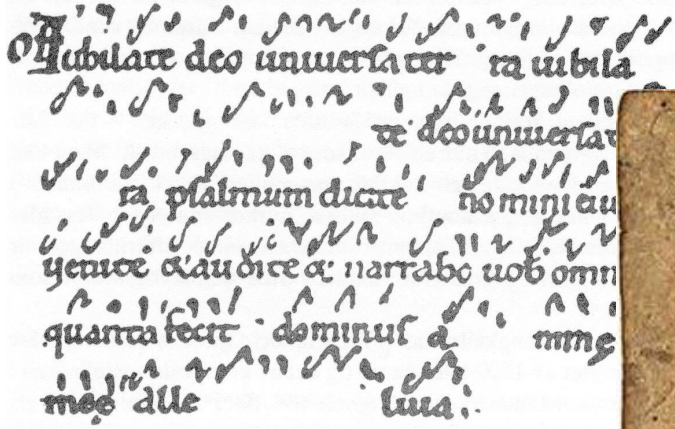 Iubilate deo uniuerſa ter ra iubila
te deo uniuerſa t
ra pſalmum dicite nomini eiu
uenite & audite & narrabo uob omn
quanta fecit dominuſ a nimę
meę alle luia:.